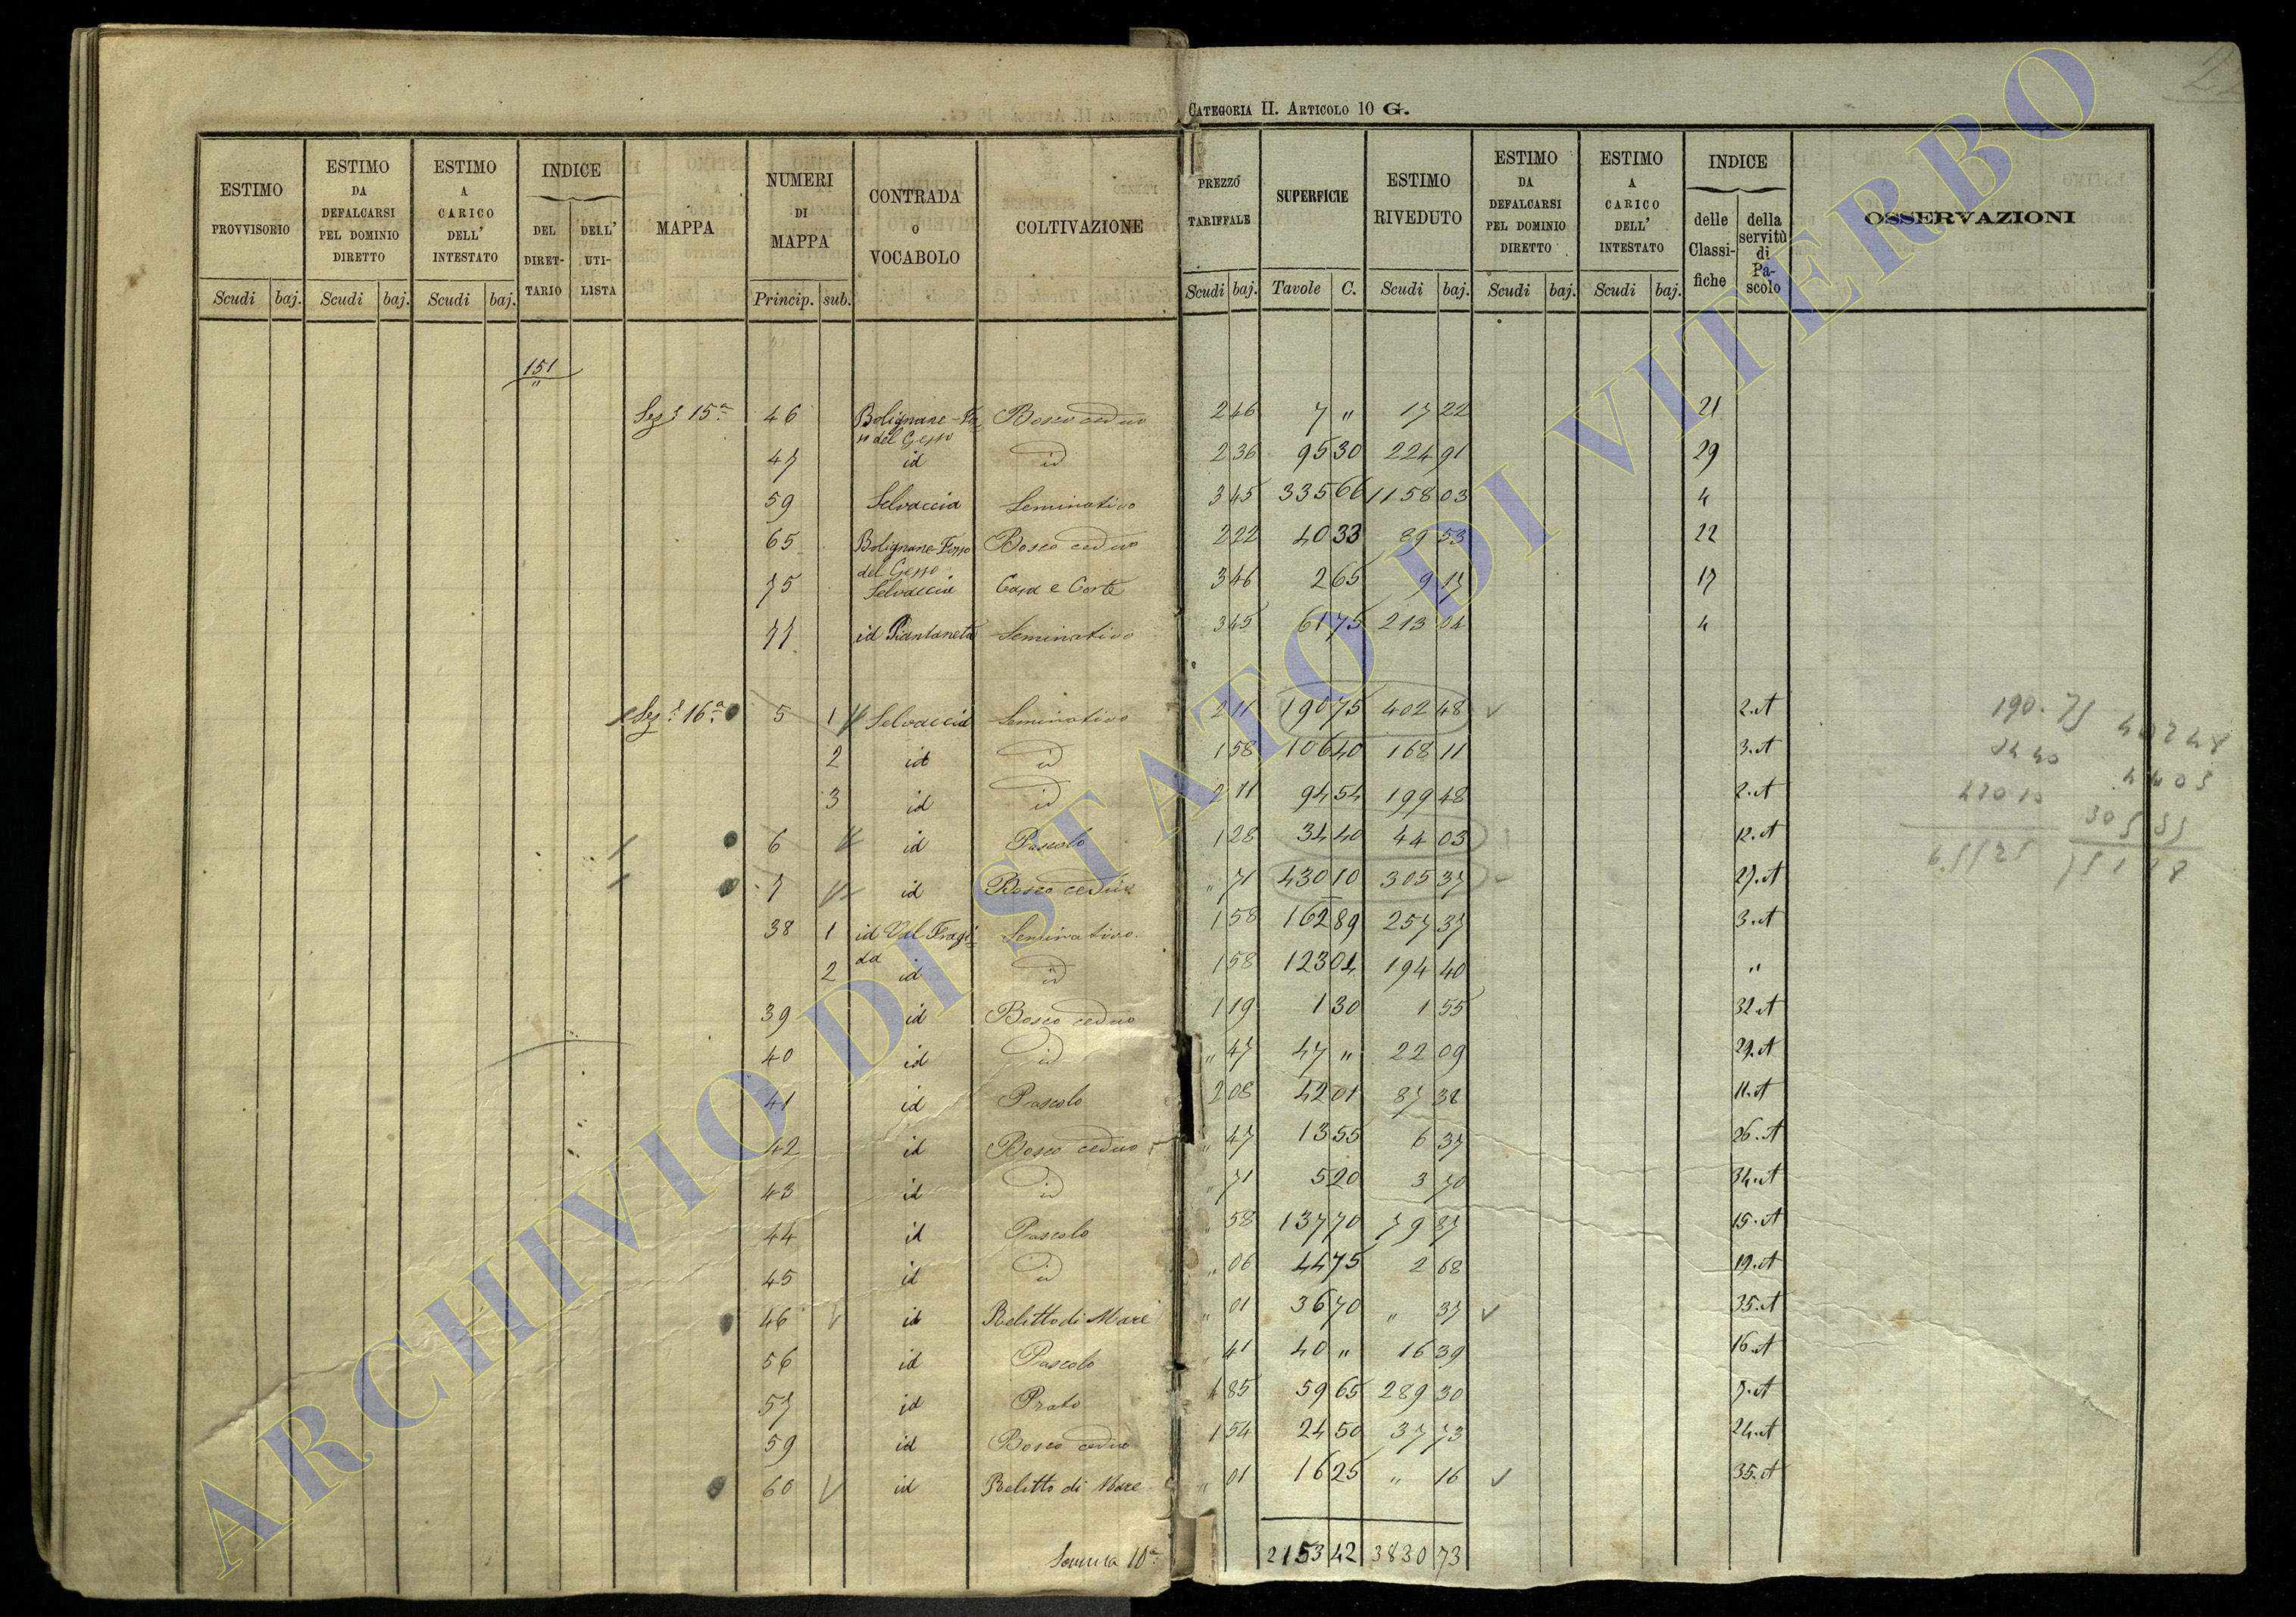 CATEGORIA II. ARTICOLO 10 G.
ESTIMO PROVVISORIO Scudi baj.
ESTIMO DA DEFALCARSI PEL DOMINIO DIRETTO Scudi baj.
ESTIMO A CARICO DELL' INTESTATO Scudi baj.
INDICE DEL DIRET-TARIO DELL' UTI-LISTA
MAPPA
NUMERI DI MAPPA Princip. sub.
CONTRADA o VOCABOLO
COLTIVAZIONE
PREZZO TARIFFALE Scudi baj.
SUPERFICIE Tavole C.
ESTIMO RIVEDUTO Scudi baj.
ESTIMO DA DEFALCARSI PEL DOMINIO DIRETTO Scudi baj.
ESTIMO A CARICO DELL' INTESTATO Scudi baj.
INDICE delle Classi-fiche della servitù di Pa-scolo
OSSERVAZIONI
151
"
Sez.e 15a 46 Bolignane-Fos= Bosco ceduo 2 46 7 " 17 22 21
so del Gesso
47 id id 2 36 95 30 224 91 29
59 Selvaccia Seminativo 3 45 335 66 1158 03 4
65 Bolignane-Fosso Bosco ceduo 2 22 40 33 89 53 22
del Gesso
75 Selvaccia Casa e Corte 3 46 2 65 9 17 17
77 id Piantaneta Seminativo 3 45 61 75 213 04 4
Sez.e 16a 5 1 Selvaccia Seminativo 2 11 190 75 402 48 2.A
2 id id 1 58 106 40 168 11 3.A
3 id id 2 11 94 54 199 48 2.A
6 id Pascolo 1 28 34 40 44 03 12.A
7 id Bosco ceduo " 71 430 10 305 37 27.A
38 1 id Val Fragi= Seminativo 1 58 162 89 257 37 3.A
da
2 id id 1 58 123 04 194 40 "
39 id Bosco ceduo 1 19 1 30 1 55 32.A
40 id id " 47 47 " 22 09 29.A
41 id Pascolo 2 08 42 01 87 38 11.A
42 id Bosco ceduo " 47 13 55 6 37 26.A
43 id id " 71 5 20 3 70 34.A
44 id Pascolo " 58 137 70 79 87 15.A
45 id id " 06 44 75 2 68 19.A
46 id Relitto di Mare " 01 36 70 " 37 35.A
56 id Pascolo " 41 40 " 16 39 16.A
57 id Prato 4 85 59 65 289 30 7.A
59 id Bosco ceduo 1 54 24 50 37 73 24.A
60 id Relitto di Mare " 01 16 25 " 16 35.A
Somma 10a 2153 42 3830 73
190.75 40248
3440 4403
43010
ARCHIVIO DI STATO DI VITERBO